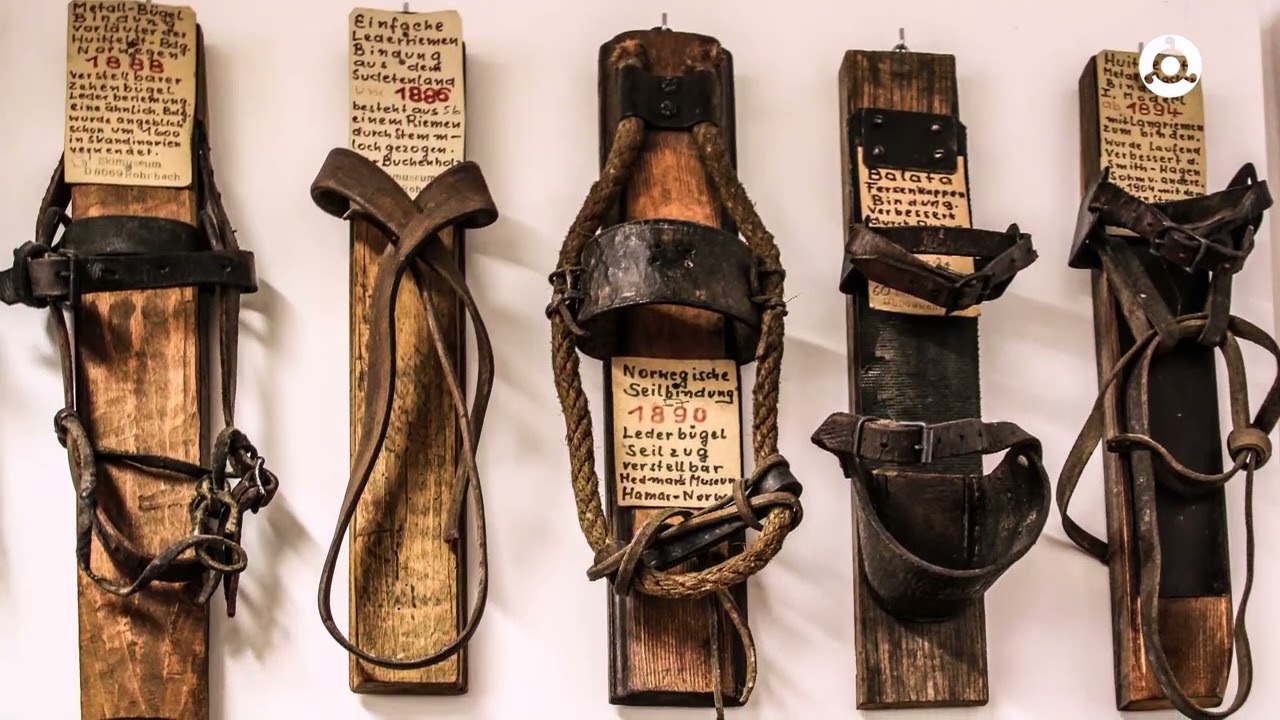 Metall-Bügel
Bindung
Vorläufer der
Huitfeldt-Bdg.
Norwegen
1888
verstellbarer
Zehenbügel
Lederberiemung
eine ähnlich. Bdg.
wurde angeblich
schon um 1600
in Skandinavien
verwendet.
Skimuseum
D 8069 Rohrbach
Einfache
Lederriemen
Bindung
aus dem
Sudetenland
um 1886
besteht aus
einem Riemen
durch Stemm-
loch gezogen.
Buchenholz
Norwegische
Seilbindung
1890
Lederbügel
Seilzug
verstellbar
Hedmark Museum
Hamar-Norw
Balata
Fersenkappen
Bindung.
Verbessert
durch
60
Huit
Metall
Bin
I. Modell
ab 1894
mit Langriemen
zum binden.
Wurde laufend
Verbessert d.
Smith-Hagen
Sohm u. andere.
1904 mit